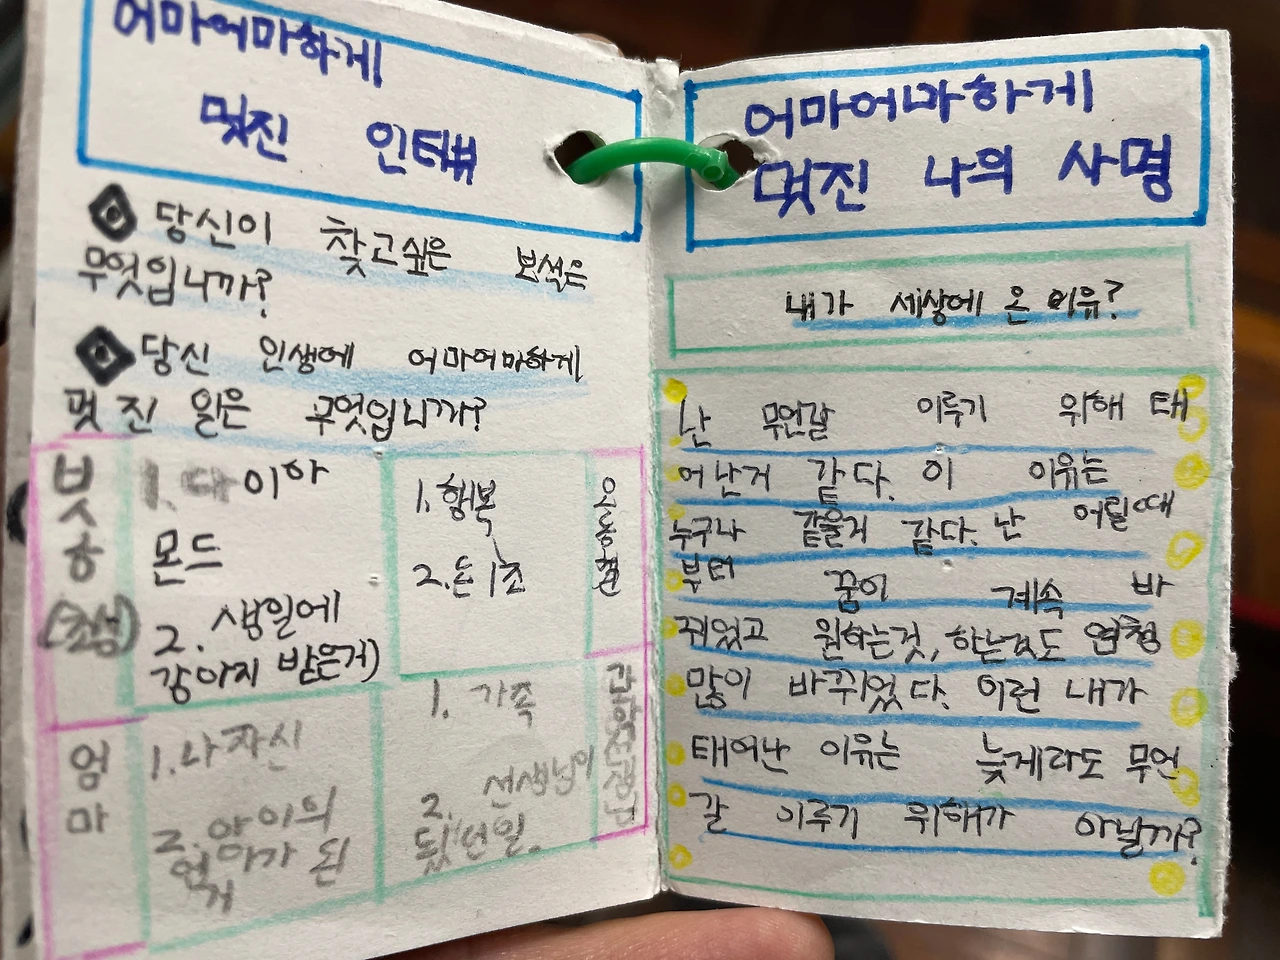 어마어마하게
멋진 인터뷰
당신이 찾고싶은 보석은
무엇입니까?
당신 인생에 어마어마하게
멋진 일은 무엇입니까?
친구
1. 다이아
몬드
2. 생일에
강아지 받은거)
1. 행복
2. 돈 1조
엄
마
1. 나 자신
2. 아이의
엄마가 된
거
1. 가족
2. 선생님이
됬던일.
어마어마하게
멋진 나의 사명
내가 세상에 온 이유?
난 무언갈 이루기 위해 태
어난거 같다. 이 이유는
누구나 같을거 같다. 난 어릴때
부터 꿈이 계속 바
뀌었고 원하는것, 하는것도 엄청
많이 바뀌었다. 이런 내가
태어난 이유는 늦게라도 무언
갈 이루기 위해가 아닐까?